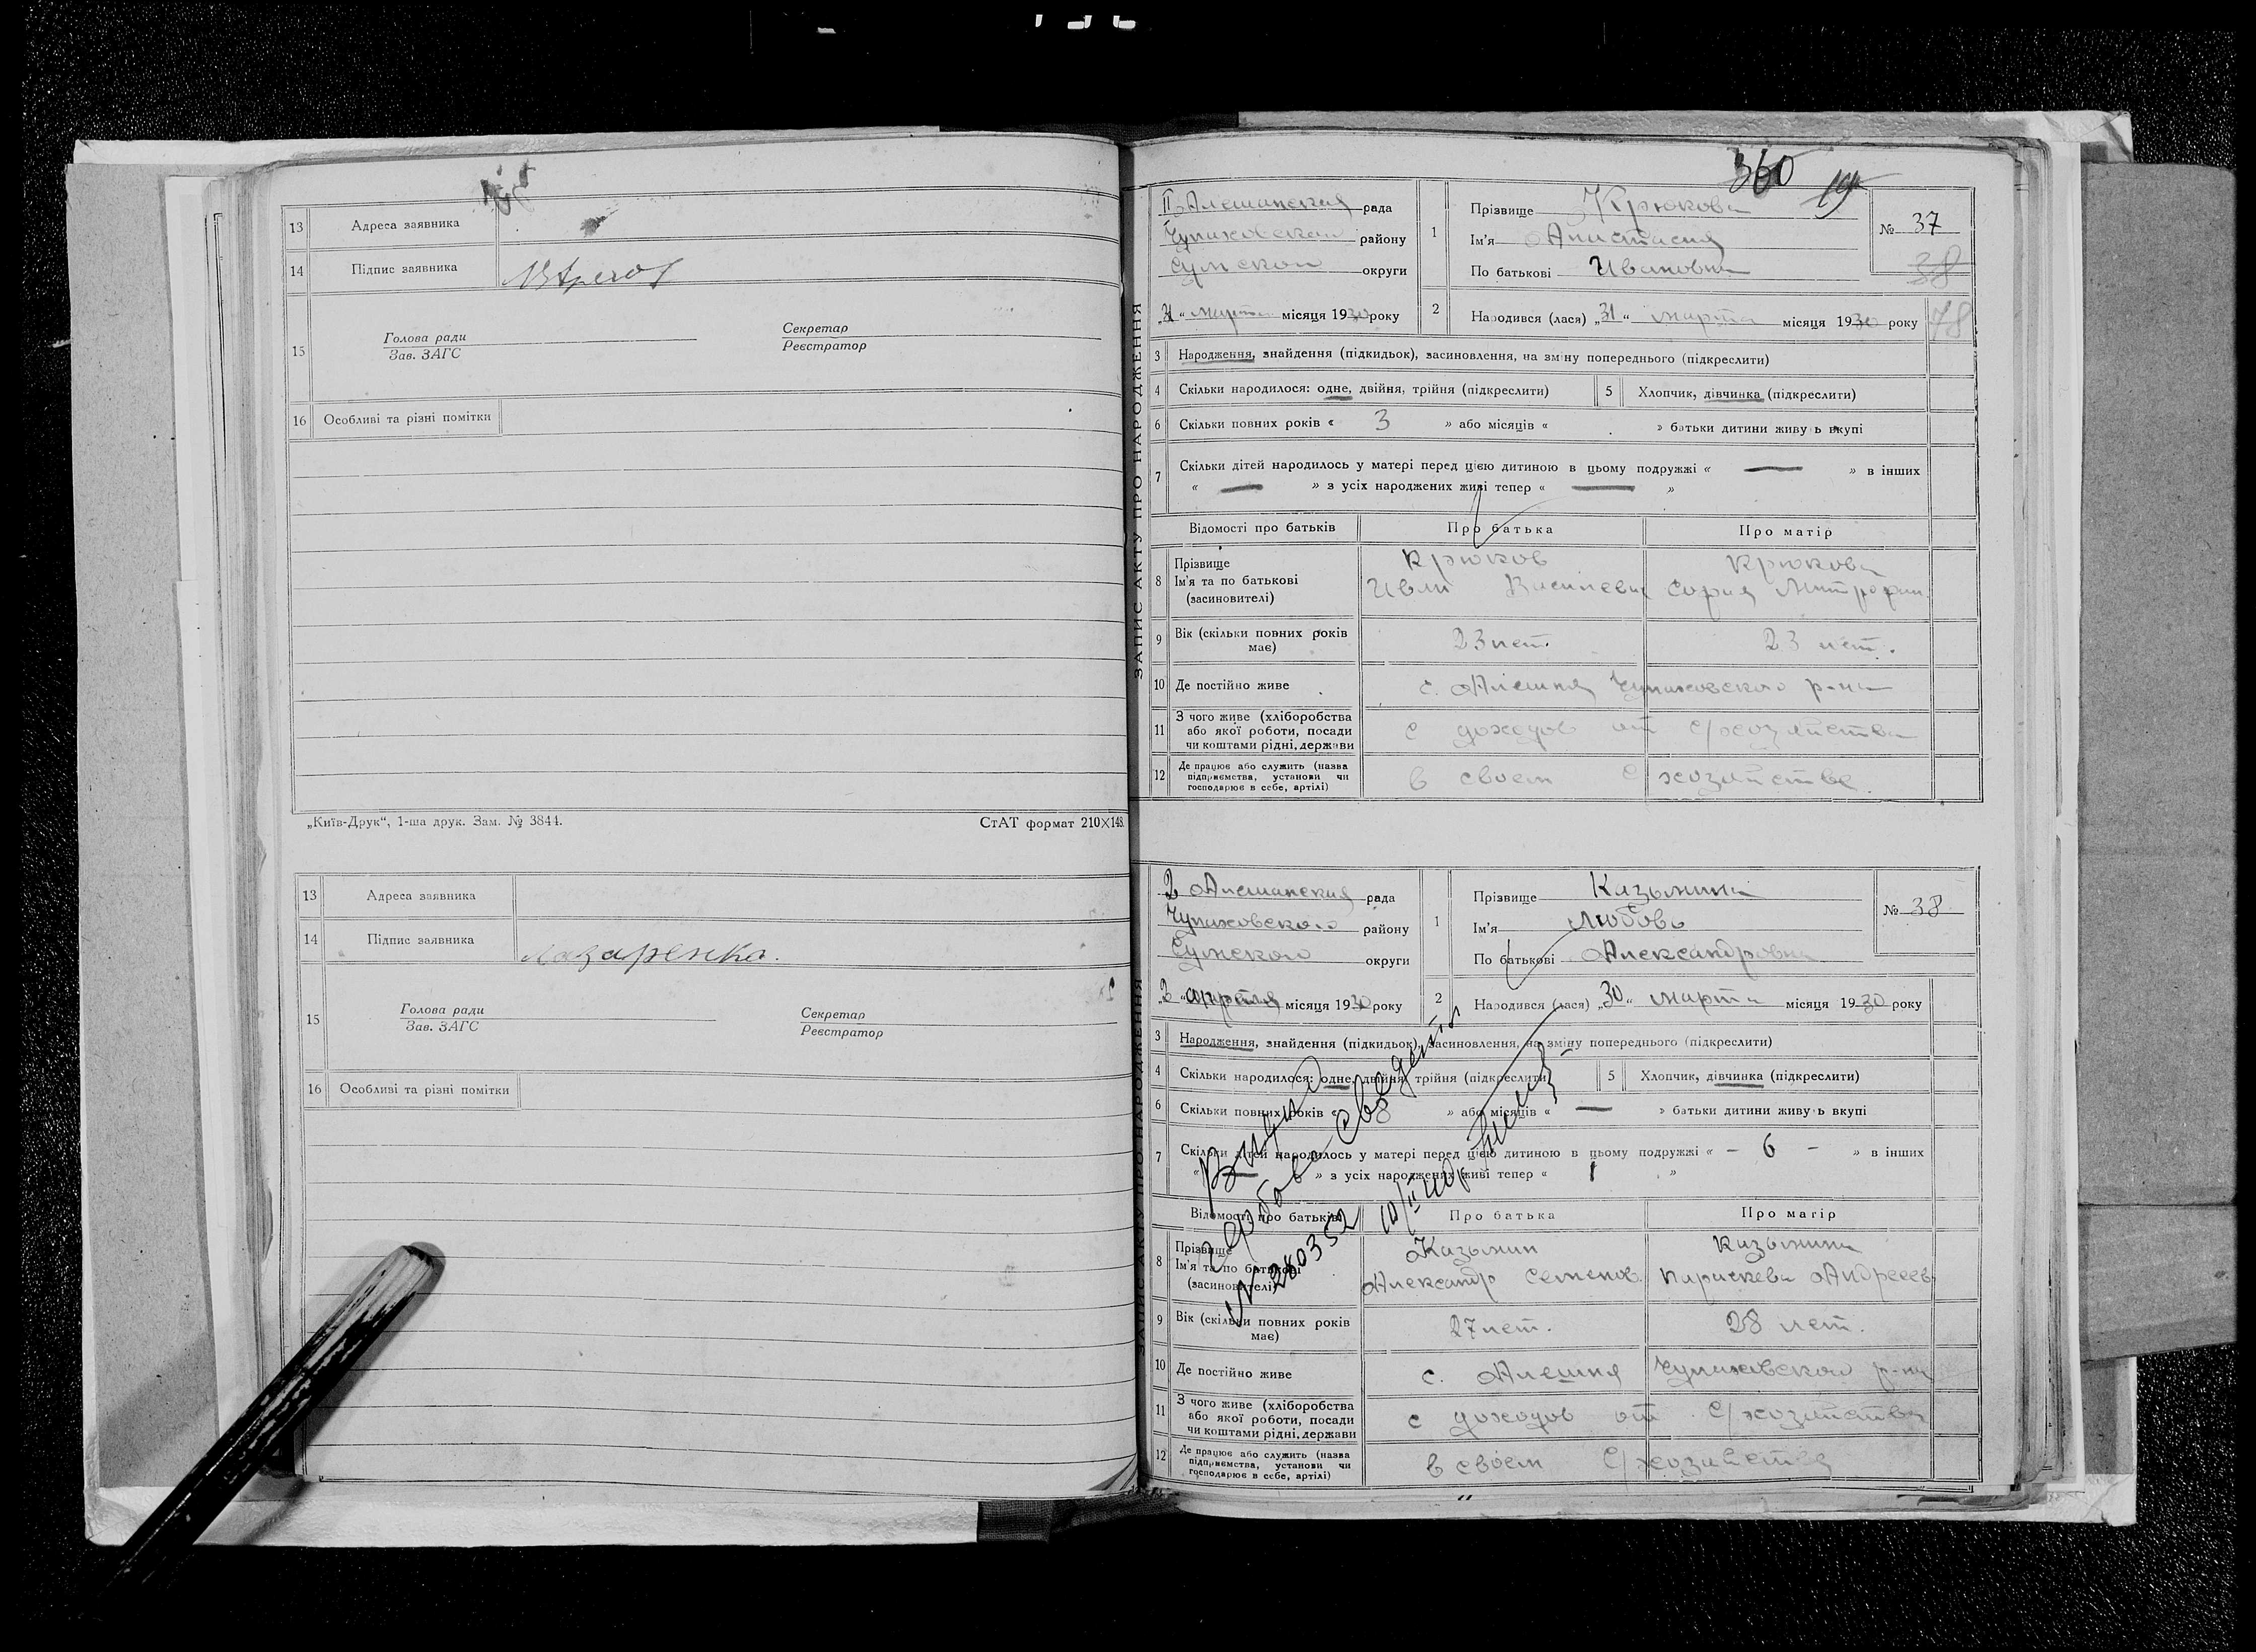 13 Адреса заявника
14 Підпис заявника
15 Голова ради Секретар
Зав. ЗАГС Реєстратор
16 Особливі та різні помітки
„Київ-Друк“, 1-ша друк. Зам. № 3844. СтАТ формат 210×148.
13 Адреса заявника
14 Підпис заявника Лазаренко.
15 Голова ради Секретар
Зав. ЗАГС Реєстратор
16 Особливі та різні помітки
360
19
ЗАПИС АКТУ ПРО НАРОДЖЕННЯ
II Алешанская рада
Чупаховского району
Сумской округи
місяця 1930 року
1 Прізвище Крюкова
Ім'я Анастасия
По батькові Ивановна
№ 37
38
2 Народився (лася) „31“ марта місяця 1930 року
78
3 Народження, знайдення (підкидьок), засиновлення, на зміну попереднього (підкреслити)
4 Скільки народилося: одне, двійня, трійня (підкреслити) 5 Хлопчик, дівчинка (підкреслити)
6 Скільки повних років « 3 » або місяців « » батьки дитини живуть вкупі
7 Скільки дітей народилось у матері перед цією дитиною в цьому подружжі « — » в інших
« — » з усіх народжених живі тепер « — »
Відомості про батьків Про батька Про матір
8 Прізвище Крюков Крюкова
Ім'я та по батькові Иван Василевич София Митрофан.
(засновителі)
9 Вік (скільки повних років має) 23 лет. 23 лет.
10 Де постійно живе с. Алешня Чупаховского р-на
11 З чого живе (хліборобства або якої роботи, посади чи коштами рідні, держави с доходов от с/хозяйства
12 Де працює або служить (назва підприємства, установи чи господарює в себе, артілі) в своем с/хозяйстве.
ЗАПИС АКТУ ПРО НАРОДЖЕННЯ
2 Алешанская рада
Чупаховского району
Сумского округи
„3“ апреля місяця 1930 року
1 Прізвище Казьмина
Ім'я Любовь
По батькові Александровна
№ 38
2 Народився (лася) „30“ марта місяця 1930 року
3 Народження, знайдення (підкидьок), засиновлення, на зміну попереднього (підкреслити)
4 Скільки народилося: одне, двійня, трійня (підкреслити) 5 Хлопчик, дівчинка (підкреслити)
6 Скільки повних років « 8 » або місяців « — » батьки дитини живуть вкупі
7 Скільки дітей народилось у матері перед цією дитиною в цьому подружжі « – 6 – » в інших
« » з усіх народжених живі тепер « 1 »
№ 280352
Відомості про батьків Про батька Про матір
8 Прізвище Казьмин Казьмина
Ім'я та по батькові Александр Семенов. Параскева Андреев.
(засиновителі)
9 Вік (скільки повних років має) 27 лет. 28 лет.
10 Де постійно живе с. Алешня Чупаховского р-на
11 З чого живе (хліборобства або якої роботи, посади чи коштами рідні, держави с доходов от с/хозяйства
12 Де працює або служить (назва підприємства, установи чи господарює в себе, артілі) в своем с/хозяйстве